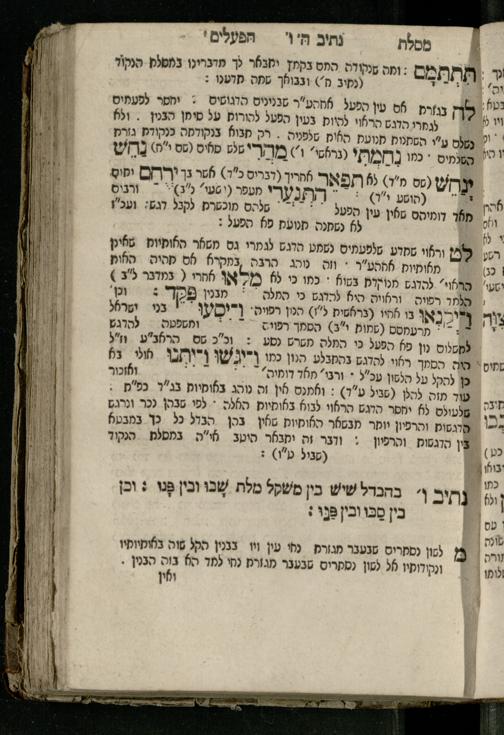 מסלת נתיב ה' ו' הפעלים
תתתמם : ומה שנקודה המם בקמץ יתבאר לך מדברינו במסלת הנקוד
(נתיב מ') ובבואך שמה תדענו :
לח בגזרת אם עין הפעל אחהע"ר שבנינים הדגושים יחסר לפעמים
לגמרי הדגש הראוי להיות בעין הפעל להורות על סימן הבנין . ולא
נשלם ע"י השתנות תנועת האות שלפניה . רק תבוא בנקודתה כנקודת גזרת
השלמים . כמו נחמתי (בראשי' ו') מהרי שלש סאים (שם י"ח) נחש
ינחש (שם מ"ד) לא תפאר אחריך (דברים כ"ד) אשר בך ירחם יתום
(הושע י"ד) התנערי מעפר (ישעי' נ"ב) ורבים
מאד דומיהם שאין עין הפעל שלהם מוכשרת לקבל דגש. ועכ"ז
לא נשתנה תנועת פא הפעל :
לט וראוי שתדע שלפעמים נשמט הדגש לגמרי גם משאר האותיות שאין
מאותיות אחהע"ר . וזה נוהג הרבה במקרא אם תהיה האות
הראוי' להדגש מנוקדת בשוא . כמו כי לא מלאו אחרי (במדבר ל"ב)
הלמד רפויה . וראויה היא להדגש כי המלה מבנין פקד : וכן
ויקנאו בו אחיו (בראשית ל"ז) הנון רפויה. ויסעו בני ישראל
מרעמסס (שמות י"ב) הסמך רפויה ומשפטה להדגש
לתשלום נון פא הפעל כי המלה משרש נסע : וכ"כ שם הראב"ע וז"ל
היה הסמך ראוי להדגש בהתבלע הנון כמו ויגשו ויתנו אולי בא
כן להקל על הלשון עכ"ל . ורבי' מאד דומיה' ואזכור
עוד מזה להלן (שביל ע"ד) : ואמנם אין זה נוהג באותיות בג"ד כפ"ת .
שלעולם לא יחסר הדגש הראוי לבוא באותיות האלה . לפי שבהן נכר ונרגש
הדגשות והרפיון יותר מבשאר האותיות שאין בהן הבדל כל כך במבטא
בין הדגשות והרפיון : ודבר זה יתבאר היטב אי"ה במסלת הנקוד
(שביל ט"ו) :
נתיב ו' בהבדל שיש בין משקל מלת שָׁבוּ ובין פָּנוּ : וכן
בין סַבּוּ ובין פַּנּוּ :
מ לשון נסתרים שבעבר מגזרת נחי עין ויו בבנין הקל שוה באותיותיו
ונקודותיו אל לשון נסתרים שבעבר מגזרת נחי למד הא בזה הבנין .
ואין